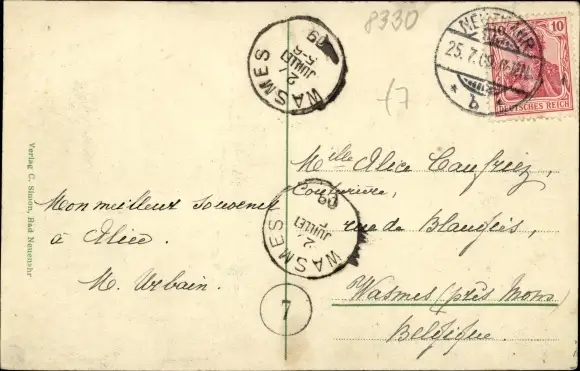 8330
NEUENAHR
25.7.09
* b *
10
DEUTSCHES REICH
WASMES
JUILLET
09
+7
Mlle Alice Caufriez,
Couturière,
rue de Blaugies,
Wasmes (près Mons)
Belgique.
Mon meilleur souvenir
à Alice.
M. Urbain.
WASMES
JUILLET
09
7
Verlag C. Simon, Bad Neuenahr